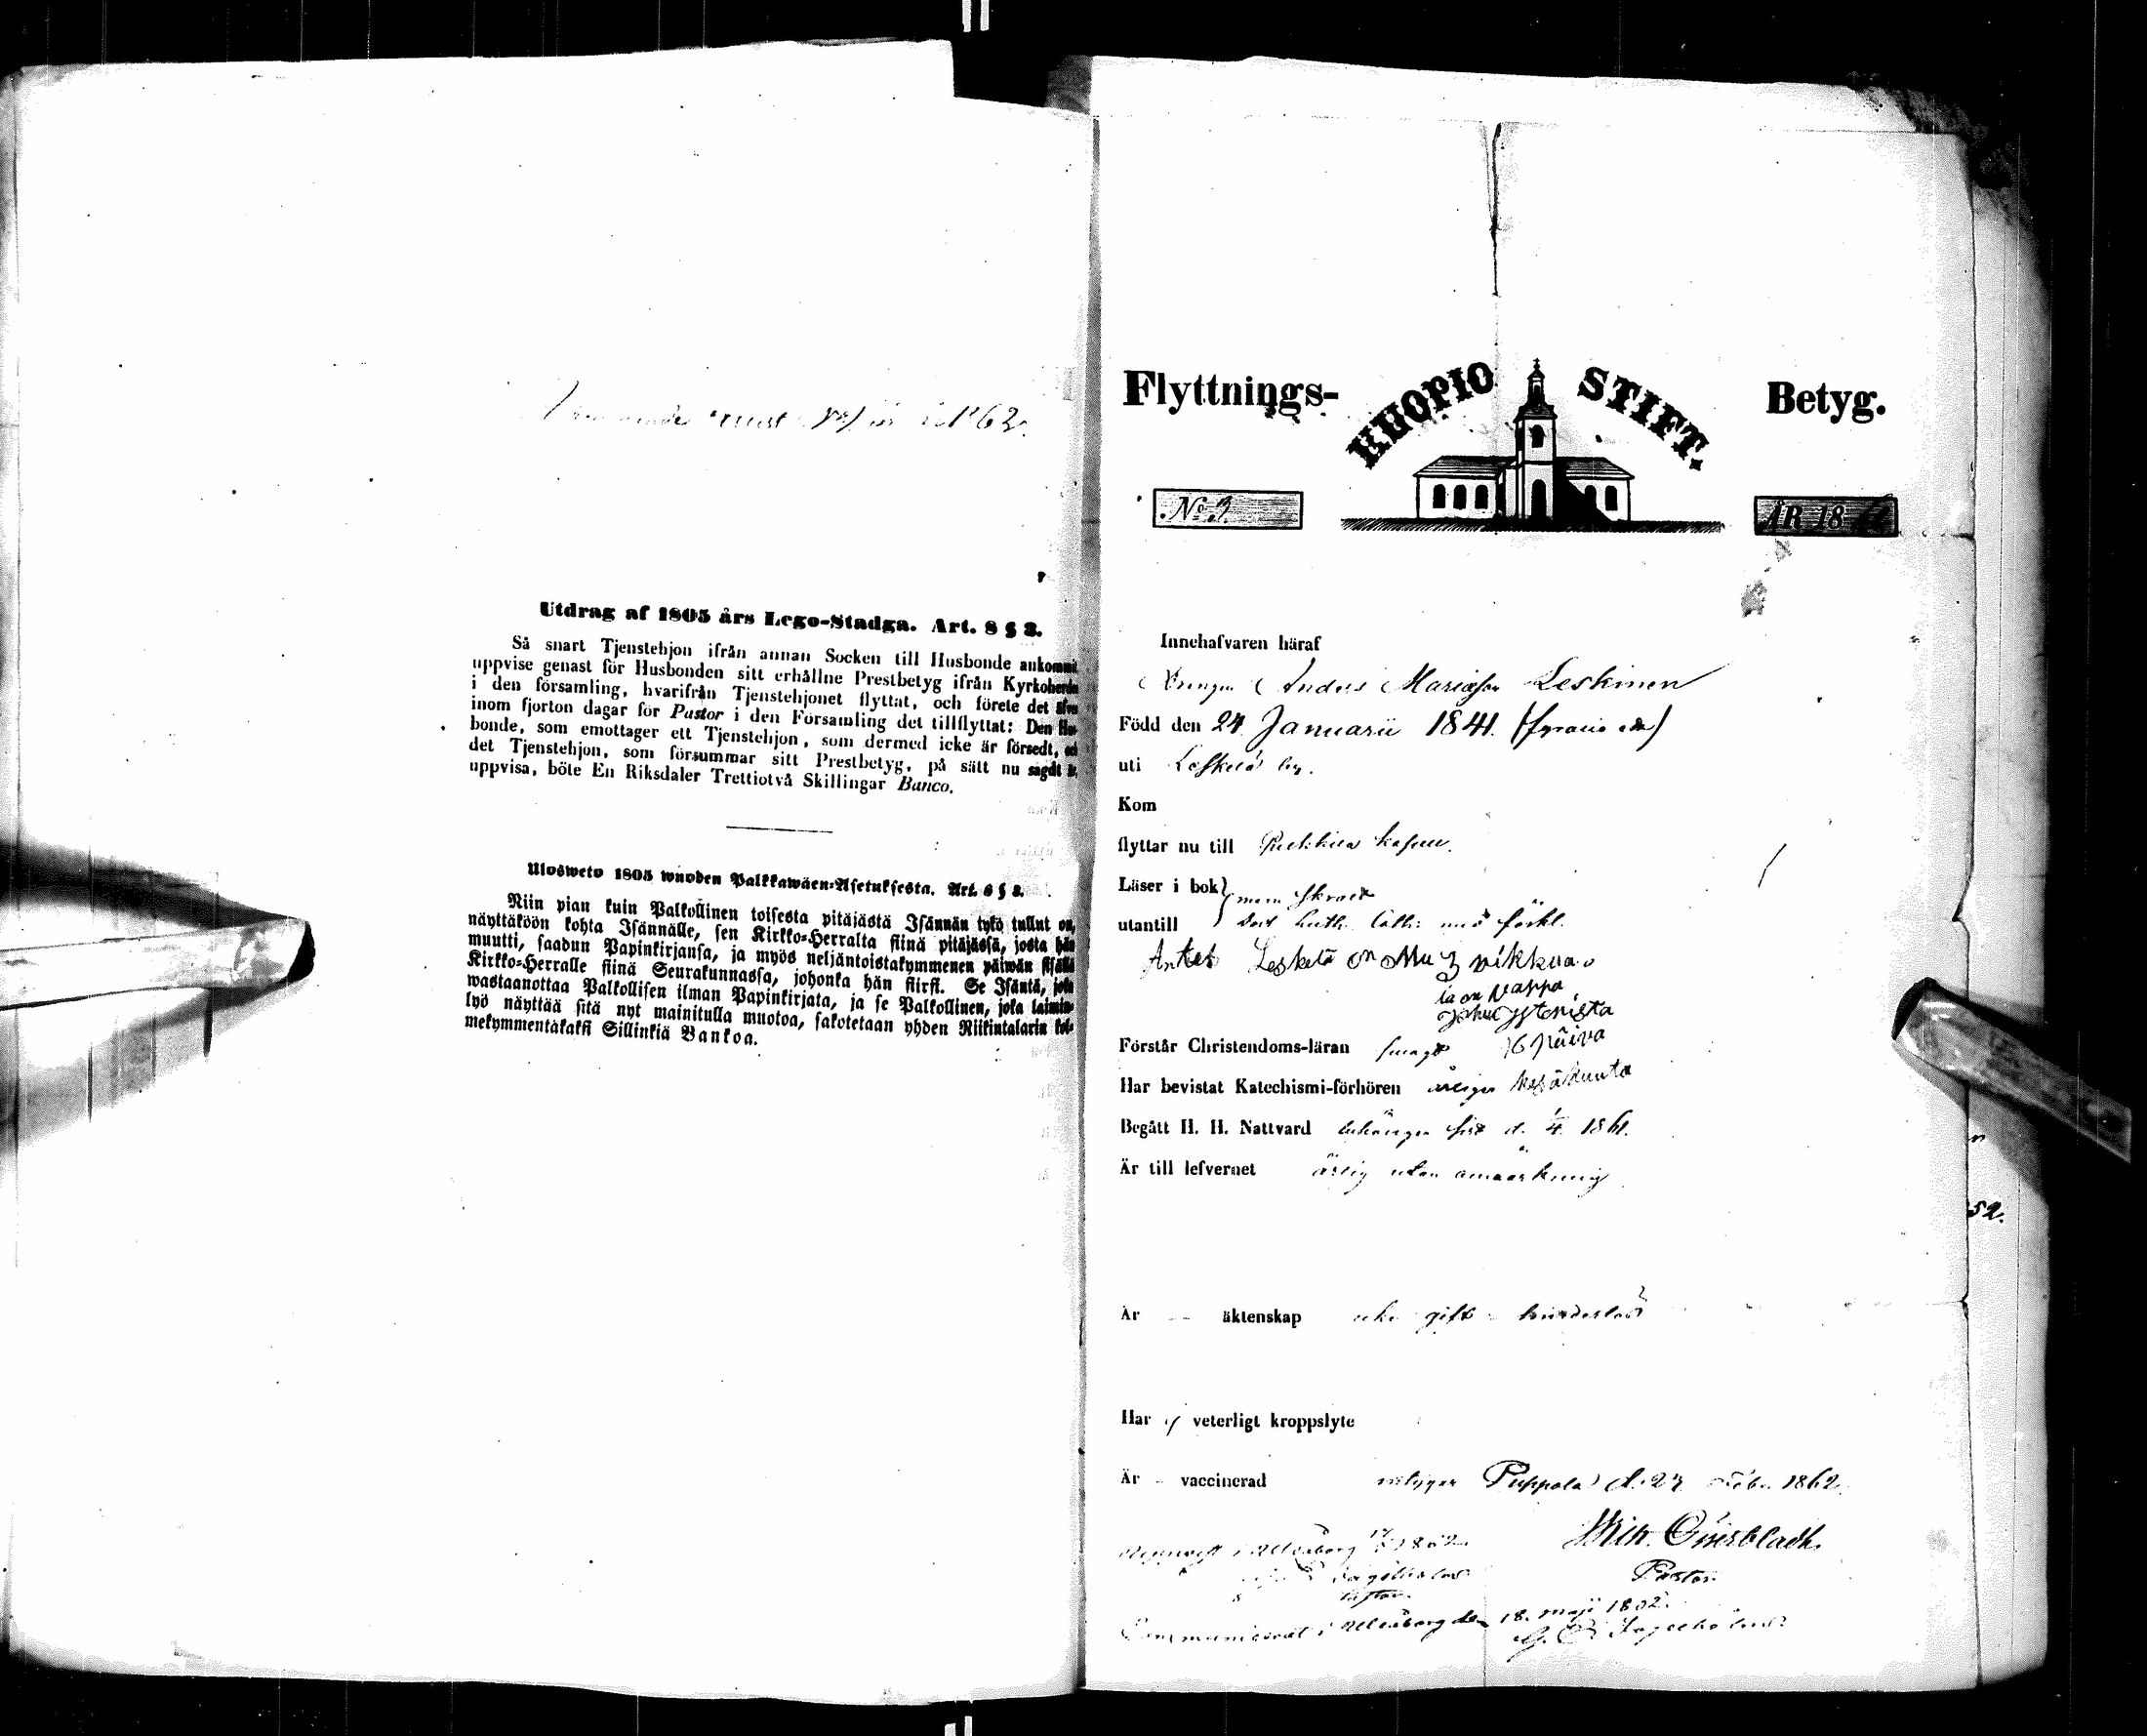 1862.
Utdrag af 1805 års Lego-Stadga. Art. 8 § 3.
Så snart Tjenstehjon ifrån annan Socken till Husbonde ankommit
uppvise genast för Husbonden sitt erhållne Prestbetyg ifrån Kyrkoherden
i den församling, hvarifrån Tjenstehjonet flyttat, och förete det äfven
inom fjorton dagar för Pastor i den Församling det tillflyttat: Den Hus-
bonde, som emottager ett Tjenstehjon, som dermed icke är försedt, och
det Tjenstehjon, som försummar sitt Prestbetyg, på sätt nu sagdt är,
uppvisa, böte En Riksdaler Trettiotvå Skillingar Banco.
Ulosweto 1805 wuoden Palkkawäen-Asetuksesta. Art. 8 § 3.
Niin pian kuin Palkollinen toisesta pitäjästä Isännän tykö tullut on,
näyttäköön kohta Isännälle, sen Kirkko-Herralta siinä pitäjässä, josta hän
muutti, saadun Papinkirjansa, ja myös neljäntoistakymmenen päiwän sisällä
Kirkko-Herralle siinä Seurakunnassa, johonka hän siirsi. Se Isäntä, joka
wastaanottaa Palkollisen ilman Papinkirjata, ja se Palkollinen, joka laimin-
lyö näyttää sitä nyt mainitulla muotoa, sakotetaan yhden Riikintalarin kol-
mekymmentäkaksi Sillinkiä Bankoa.
Flyttnings- KUOPIO STIFT. Betyg.
No 3.
ÅR 18
Innehafvaren häraf
Drengen Anders Mariæson Leskinen
Född den 24 Januarii 1841.
uti Leskelä by.
Kom
flyttar nu till
Läser i bok
utantill Luth. Cath: med förkl.
Antet Leskelä on ollu 3 vikkua
ja on vappa
16 päiva
Förstår Christendoms-läran svagt
Har bevistat Katechismi-förhören kesäkuuta
Begått H. H. Nattvard behörigen sist d. 1861.
Är till lefvernet ärlig utan anmärkning
Är äktenskap icke gift hinderslös
Har ej veterligt kroppslyte
Är vaccinerad intygar Puppola d. 27 Febr. 1862.
Wilh. Österbladh.
Uleåborg
Pastor
Communicerat i Uleåborg den 18. maji 1862.
52.